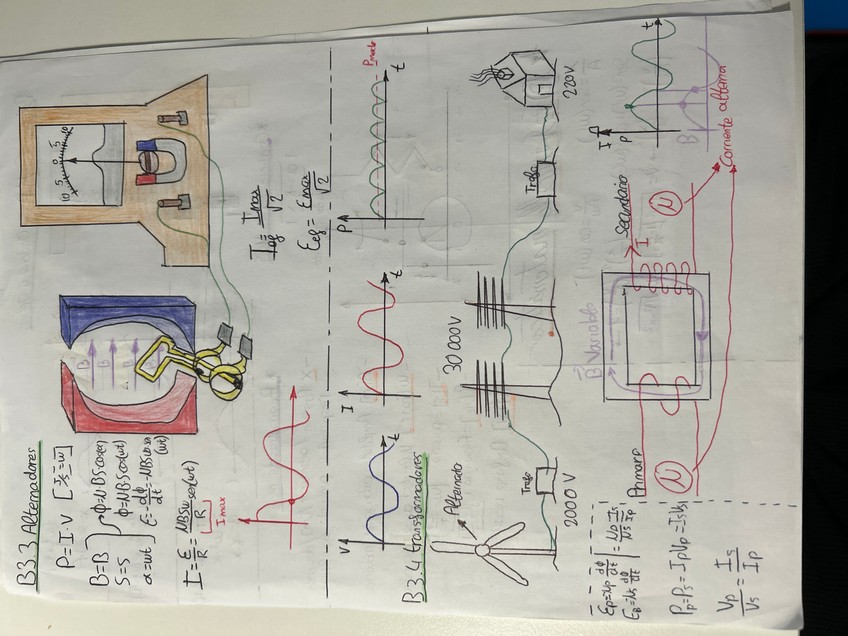 B3.3 Alternadores
P=I·V [J/s=W]
B=B
S=S
α=wt
ϕ=NBS·cosα
ϕ=NBScos(wt)
ε=-dϕ/dt=NBSw·sen(wt)
I=ε/R=NBSw/R sen(wt)
I max
B B B
10 5 0 5 10
Ief=Imax/√2
εef=εmax/√2
V t
I t
P t
Pmedia
B3.4 transformadores
Alternador
2000 V
Trafo
30 000V
Trafo
220V
εp=Np dϕ/dt
εs=Ns dϕ/dt
=Np/Ns Is/Ip
Pp=Ps=IpVp=IsVs
Vp/Vs=Is/Ip
Primario
B Variable
Secundario
I
Corriente alterna
I P t
B